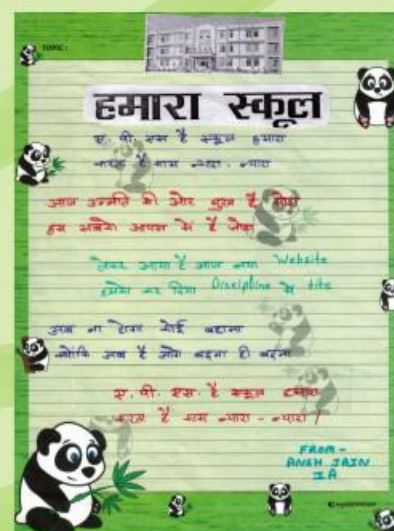 TOPIC:
हमारा स्कूल
ए. पी. एस है स्कूल हमारा
करता है काम न्यारा - न्यारा
आज उन्नति की ओर मुख है
हम सबको आपस में है जोड़ा
लेकर आया है आज नया Website
हमेशा कर दिया Discipline में tite
अब ना होगा कोई बहाना
क्योंकि अब है आगे बढ़ना ही बढ़ना
ए. पी. एस. है स्कूल हमारा
करता है काम न्यारा - न्यारा !
FROM -
ANSH JAIN
IA